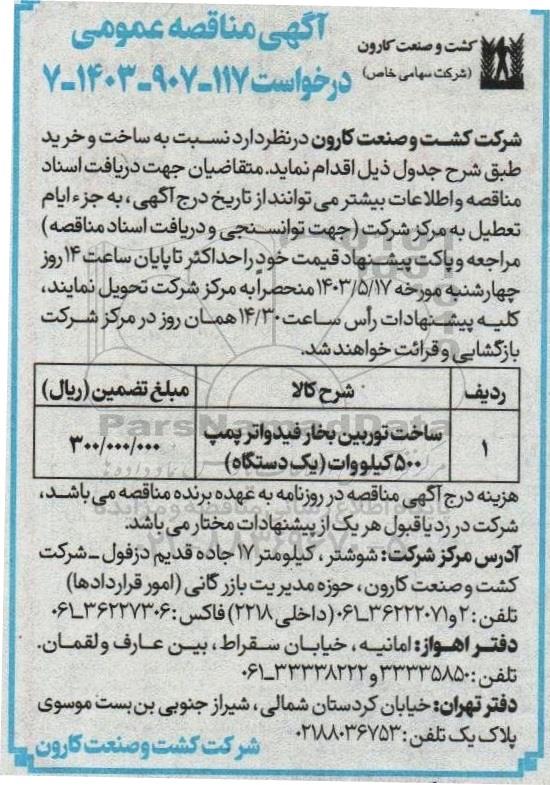 کشت و صنعت کارون
(شرکت سهامی خاص)
آگهی مناقصه عمومی
درخواست ۱۱۷-۹۰۷-۱۴۰۳-۷
شرکت کشت و صنعت کارون در نظر دارد نسبت به ساخت و خرید
طبق شرح جدول ذیل اقدام نماید. متقاضیان جهت دریافت اسناد
مناقصه و اطلاعات بیشتر می توانند از تاریخ درج آگهی، به جزء ایام
تعطیل به مرکز شرکت (جهت توانسنجی و دریافت اسناد مناقصه)
مراجعه و پاکت پیشنهاد قیمت خود را حداکثر تا پایان ساعت ۱۴ روز
چهارشنبه مورخه ۱۴۰۳/۵/۱۷ منحصراً به مرکز شرکت تحویل نمایند،
کلیه پیشنهادات رأس ساعت ۱۴/۳۰ همان روز در مرکز شرکت
بازگشایی و قرائت خواهند شد.
ردیف شرح کالا مبلغ تضمین (ریال)
۱ ساخت توربین بخار فیدواتر پمپ ۵۰۰ کیلووات (یک دستگاه) ۳۰۰/۰۰۰/۰۰۰
هزینه درج آگهی مناقصه در روزنامه به عهده برنده مناقصه می باشد،
شرکت در رد یا قبول هر یک از پیشنهادات مختار می باشد.
آدرس مرکز شرکت: شوشتر، کیلومتر ۱۷ جاده قدیم دزفول - شرکت
کشت و صنعت کارون، حوزه مدیریت بازرگانی (امور قراردادها)
تلفن: ۲ و ۳۶۲۲۲۰۷۱-۰۶۱ (داخلی ۲۲۱۸) فاکس: ۳۶۲۲۷۳۰۶-۰۶۱
دفتر اهواز: امانیه، خیابان سقراط، بین عارف و لقمان.
تلفن: ۳۳۳۳۵۸۵۰ و ۳۳۳۳۸۲۲۲-۰۶۱
دفتر تهران: خیابان کردستان شمالی، شیراز جنوبی بن بست موسوی
پلاک یک تلفن: ۰۲۱۸۸۰۳۶۷۵۳
شرکت کشت و صنعت کارون
ParsNamadData